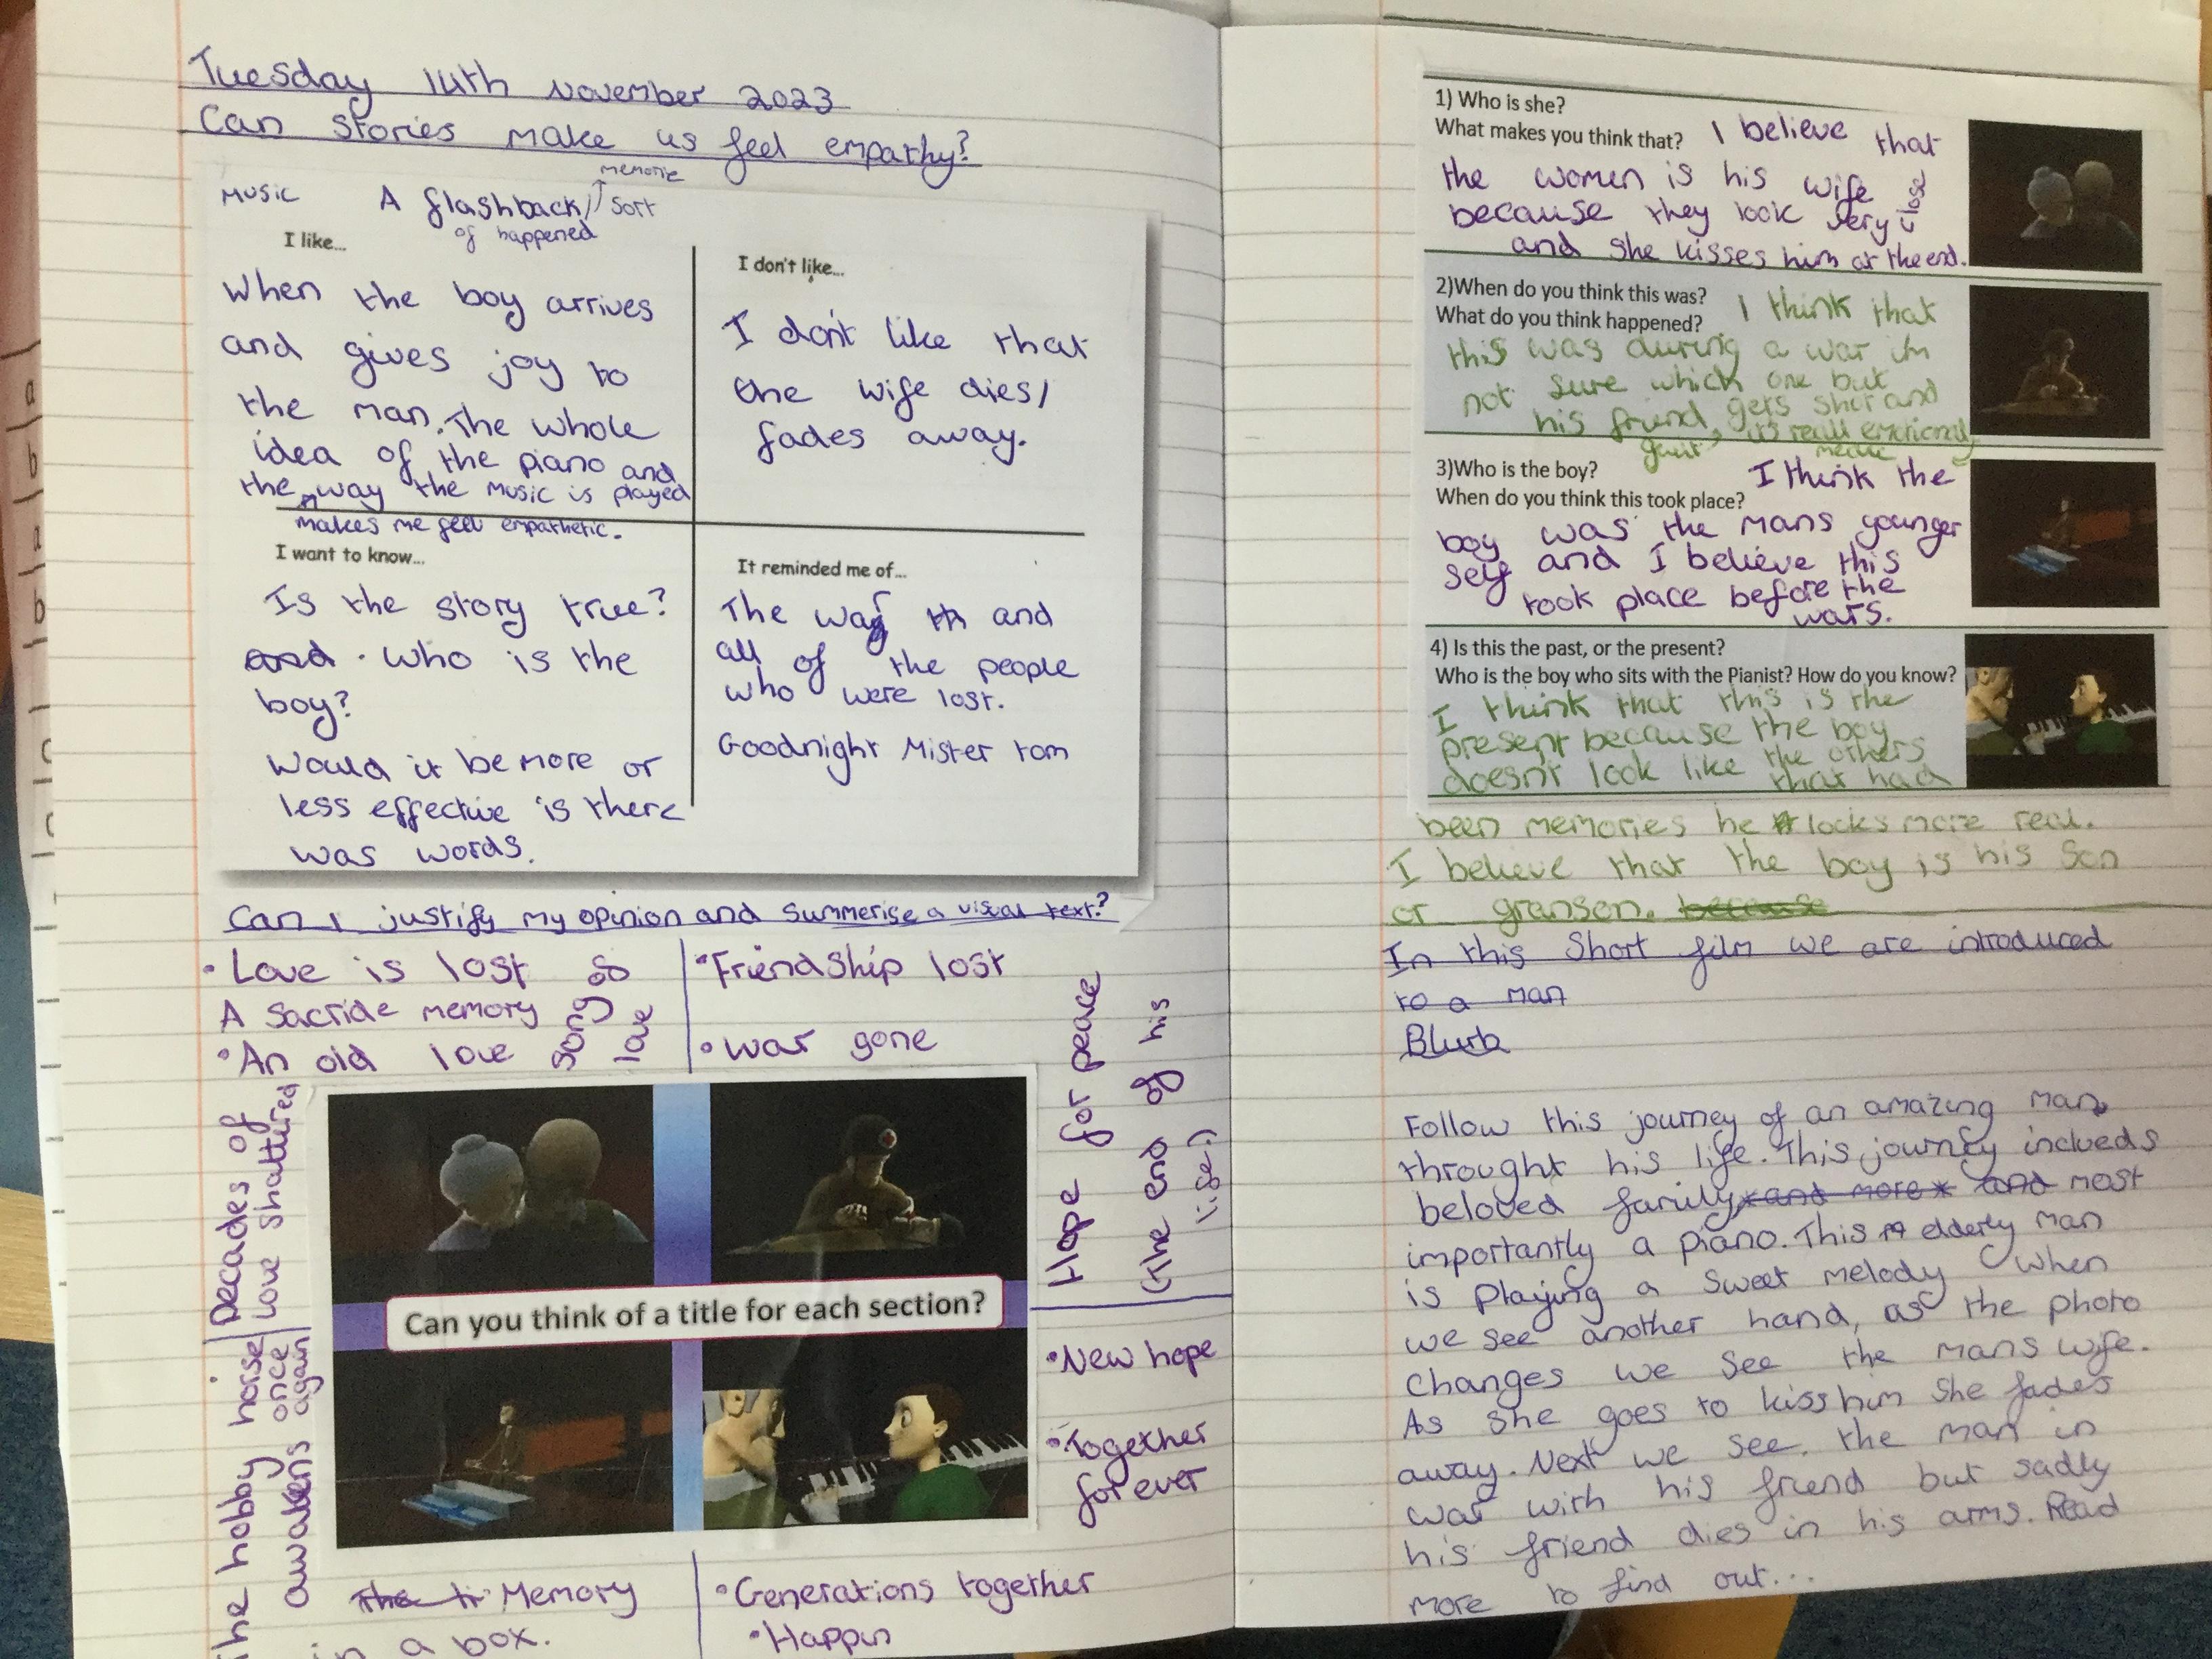 Tuesday 14th November 2023
Can stories make us feel empathy?
memorie
Music A flashback/ sort
of happened
I like...
When the boy arrives
and gives joy to
the man. The whole
idea of the piano and
the way the music is played
makes me feel empathetic.
I don't like...
I don't like that
the wife dies/
fades away.
I want to know...
Is the story true?
and . Who is the
boy?
Would it be more or
less effective is there
was words.
It reminded me of...
The war th and
all of the people
who were lost.
Goodnight Mister Tom
Can I justify my opinion and summerise a visual text?
• Love is lost so
A sacride memory
• An old love song
love
• Friendship lost
• War gone
Decades of
love shattured
Hope for peace
(The end of his
life.)
Can you think of a title for each section?
• The hobby noise
awakens once
again
• New hope
• Together
forever
The tr Memory
in a box.
• Generations together
• Happin
a
b
a
b
1) Who is she?
What makes you think that? I believe that
the women is his wife
because they look very close
and she kisses him at the end.
2)When do you think this was?
What do you think happened? I think that
this was during a war im
not sure which one but
his friend gets shot and
it's reall emotional
3)Who is the boy?
I think the
When do you think this took place?
boy was the mans younger
self and I believe this
took place before the
wars.
4) Is this the past, or the present?
Who is the boy who sits with the Pianist? How do you know?
I think that this is the
present because the boy
doesn't look like the others
that had
been memories he looks more real.
I believe that the boy is his son
or granson. because
In this short film we are introduced
to a man
Blurb
Follow this journey of an amazing man
throught his life. This journey inclueds
beloved family and more and most
importantly a piano. This elderly man
is playing a sweet melody when
we see another hand, as the photo
changes we see the mans wife.
As she goes to kiss him she fades
away. Next we see. the man in
war with his friend but sadly
his friend dies in his arms. Read
more to find out...